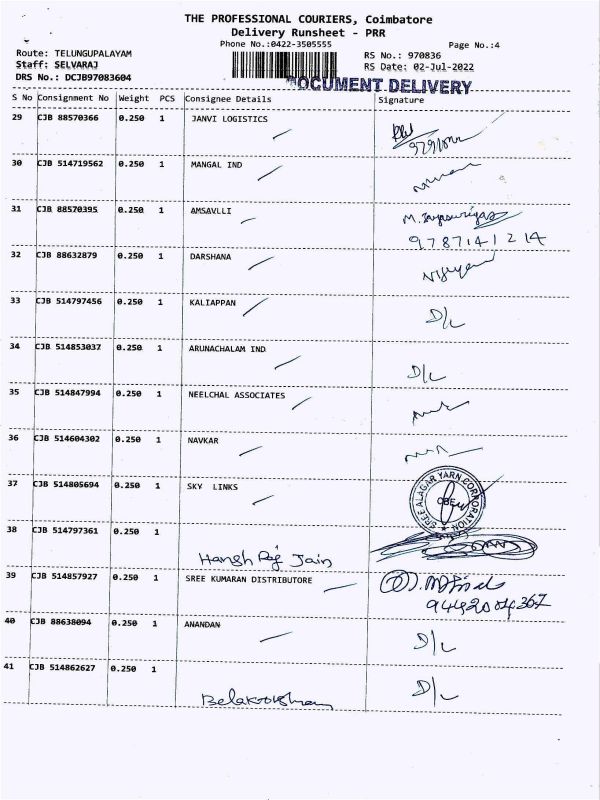 THE PROFESSIONAL COURIERS, Coimbatore
Delivery Runsheet - PRR
Phone No.:0422-3505555 Page No.:4
Route: TELUNGUPALAYAM RS No.: 970836
Staff: SELVARAJ RS Date: 02-Jul-2022
DRS No.: DCJB97083604 DOCUMENT DELIVERY
S No Consignment No Weight PCS Consignee Details Signature
29 CJB 88570366 0.250 1 JANVI LOGISTICS
30 CJB 514719562 0.250 1 MANGAL IND
31 CJB 88570395 0.250 1 AMSAVLLI
9787141214
32 CJB 88632879 0.250 1 DARSHANA
33 CJB 514797456 0.250 1 KALIAPPAN D/L
34 CJB 514853037 0.250 1 ARUNACHALAM IND D/L
35 CJB 514847994 0.250 1 NEELCHAL ASSOCIATES
36 CJB 514604302 0.250 1 NAVKAR
37 CJB 514805694 0.250 1 SKY LINKS SREE ALAGAR YARN CORPORATION CBE
38 CJB 514797361 0.250 1
Hansh Raj Jain
39 CJB 514857927 0.250 1 SREE KUMARAN DISTRIBUTORE
9442004367
40 CJB 88638094 0.250 1 ANANDAN D/L
41 CJB 514862627 0.250 1 D/L